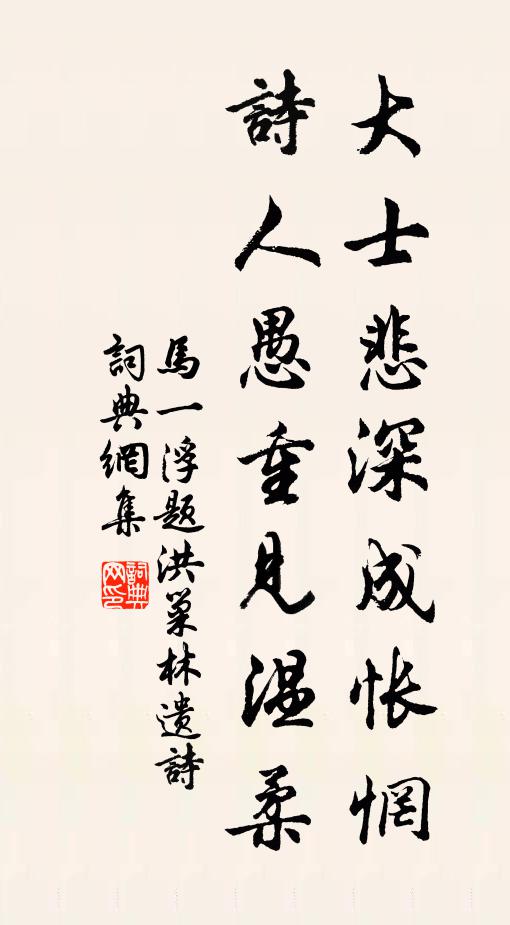 大士悲深成悵惘
詩人愚重見温柔
馬一浮題洪巢林遺詩
詞典網集
詞典网印